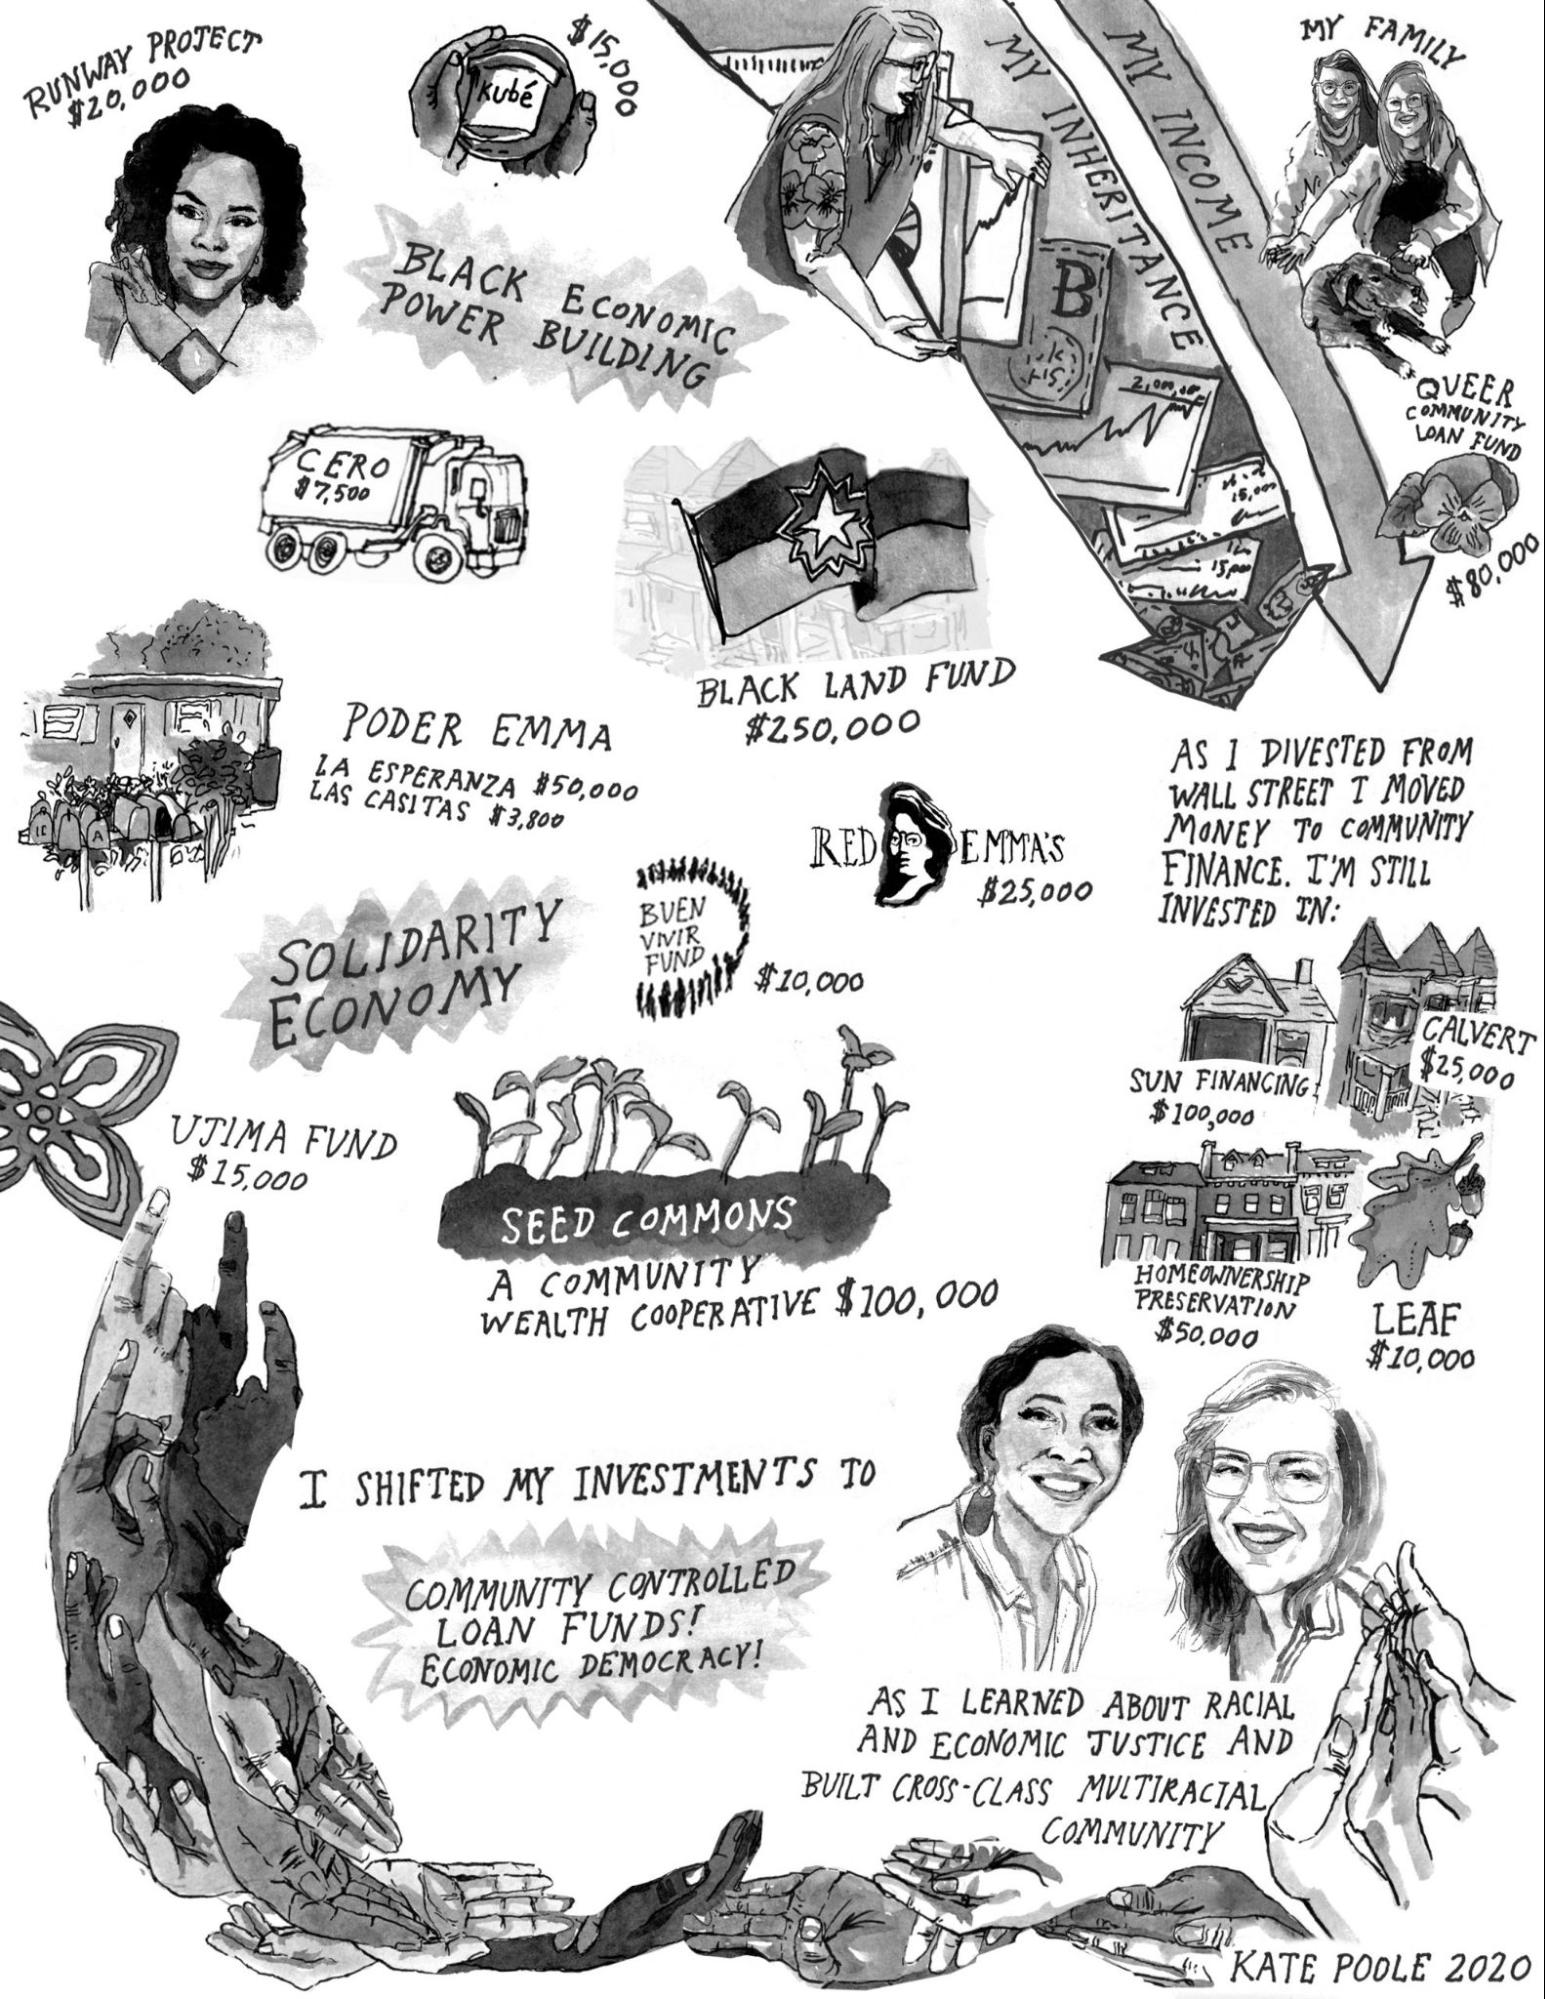 RUNWAY PROJECT
$20,000
kubé
$15,000
MY INHERITANCE
MY INCOME
MY FAMILY
BLACK ECONOMIC
POWER BUILDING
B
2,000,00
15,000
15,000
QUEER
COMMUNITY
LOAN FUND
$80,000
CERO
$7,500
BLACK LAND FUND
$250,000
PODER EMMA
LA ESPERANZA $50,000
LAS CASITAS $3,800
A
RED EMMA'S
$25,000
AS I DIVESTED FROM
WALL STREET I MOVED
MONEY TO COMMUNITY
FINANCE. I'M STILL
INVESTED IN:
SOLIDARITY
ECONOMY
BUEN
VIVIR
FUND
$10,000
SUN FINANCING
$100,000
CALVERT
$25,000
UJIMA FUND
$15,000
SEED COMMONS
A COMMUNITY
WEALTH COOPERATIVE $100,000
HOMEOWNERSHIP
PRESERVATION
$50,000
LEAF
$10,000
I SHIFTED MY INVESTMENTS TO
COMMUNITY CONTROLLED
LOAN FUNDS!
ECONOMIC DEMOCRACY!
AS I LEARNED ABOUT RACIAL
AND ECONOMIC JUSTICE AND
BUILT CROSS-CLASS MULTIRACIAL
COMMUNITY
KATE POOLE 2020